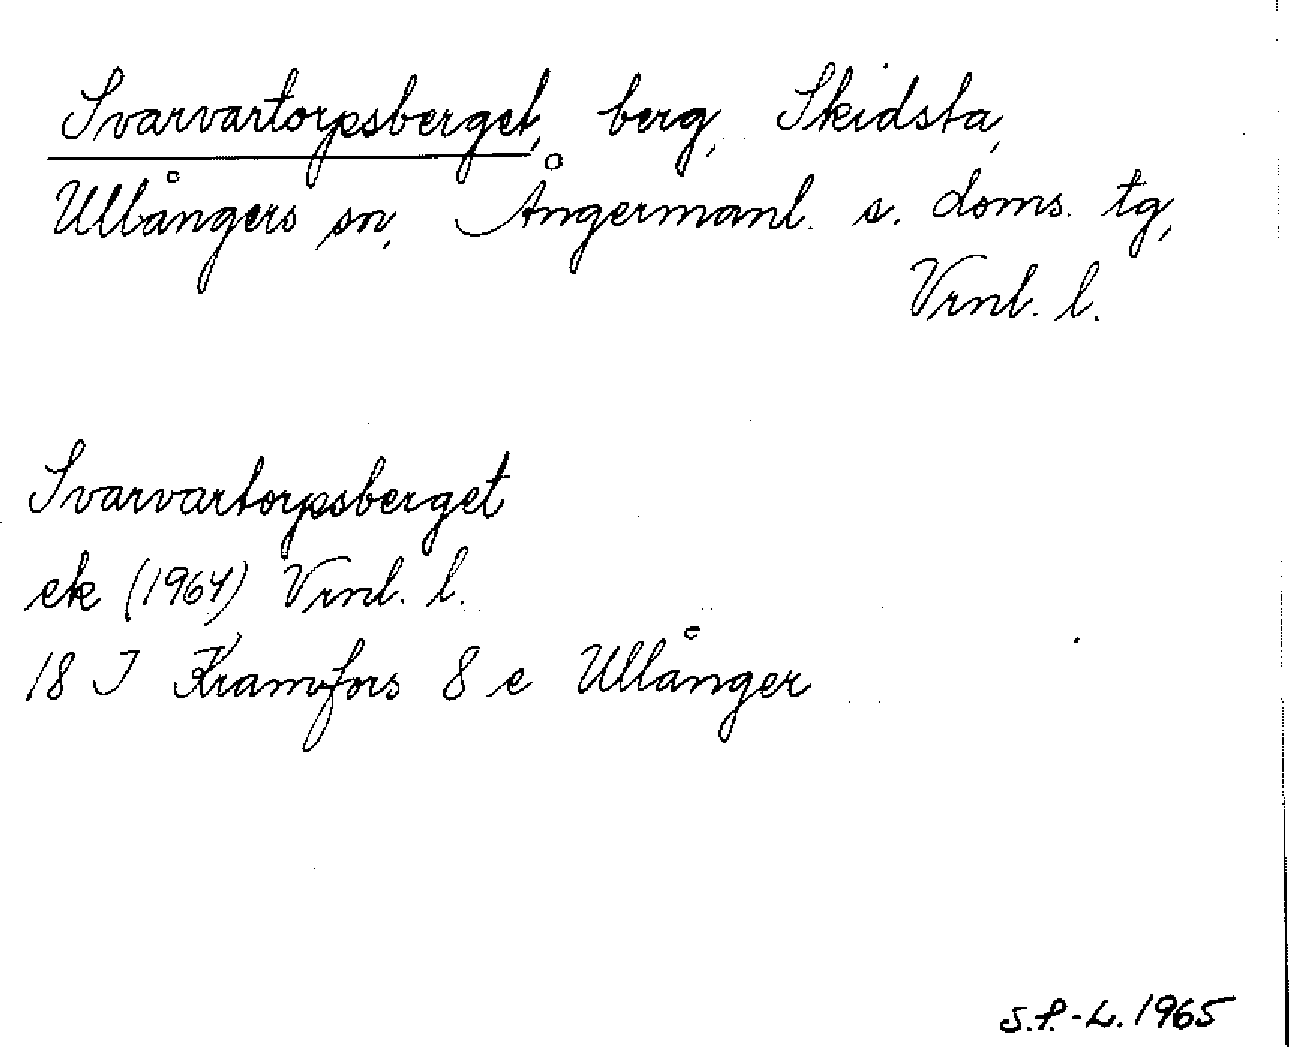 Svarvartorpsberget, berg, Skidsta,
Ullångers sn, Ångermanl. s. doms. tg,
Vrnl. l.
Svarvartorpsberget
ek (1964) Vrnl. l.
18 I Kramfors 8 e Ullånger
S.P.-L. 1965